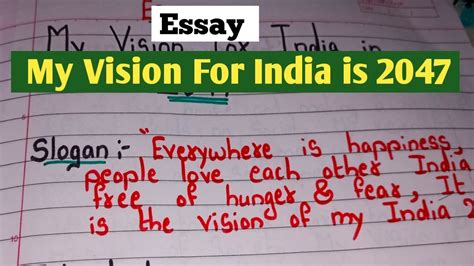 Essay
My Vision For India in
My Vision For India is 2047
Slogan :- "Everywhere is happiness,
people love each other India
free of hunger & fear, It
is the vision of my India